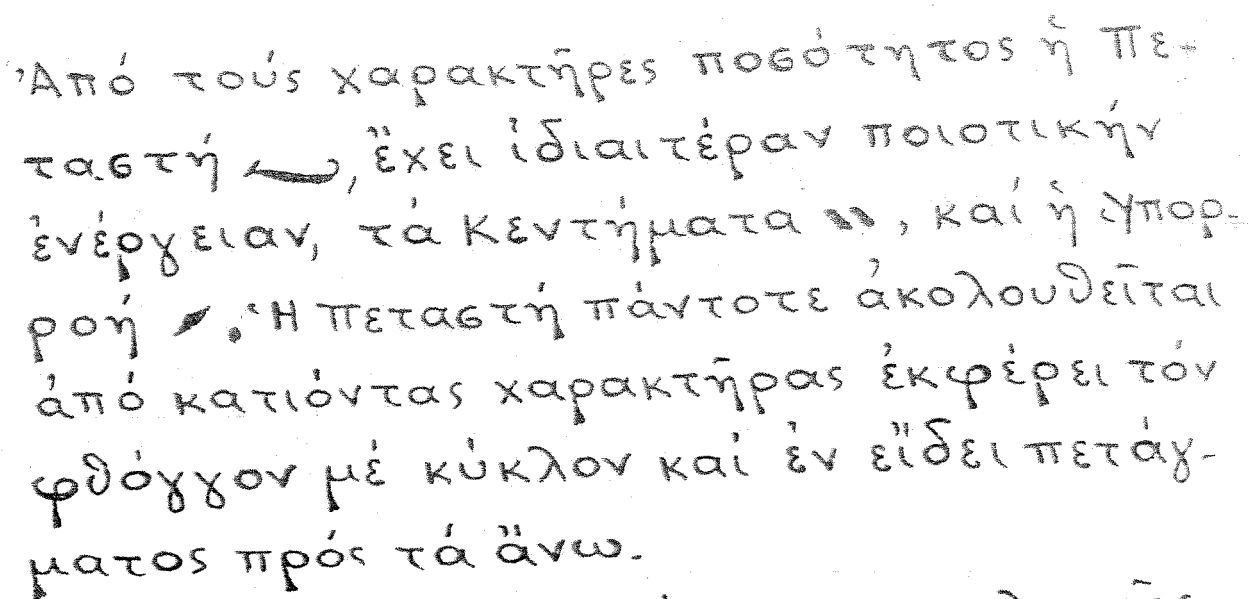 Ἀπό τούς χαρακτῆρες ποσότητος ἡ Πε-
ταστή , ἔχει ἰδιαιτέραν ποιοτικήν
ἐνέργειαν, τά Κεντήματα , καί ἡ Ὑπορ-
ροή . Ἡ Πεταστή πάντοτε ἀκολουθεῖται
ἀπό κατιόντας χαρακτῆρας ἐκφέρει τόν
φθόγγον μέ κύκλον καί ἐν εἴδει πετάγ-
ματος πρός τά ἄνω.